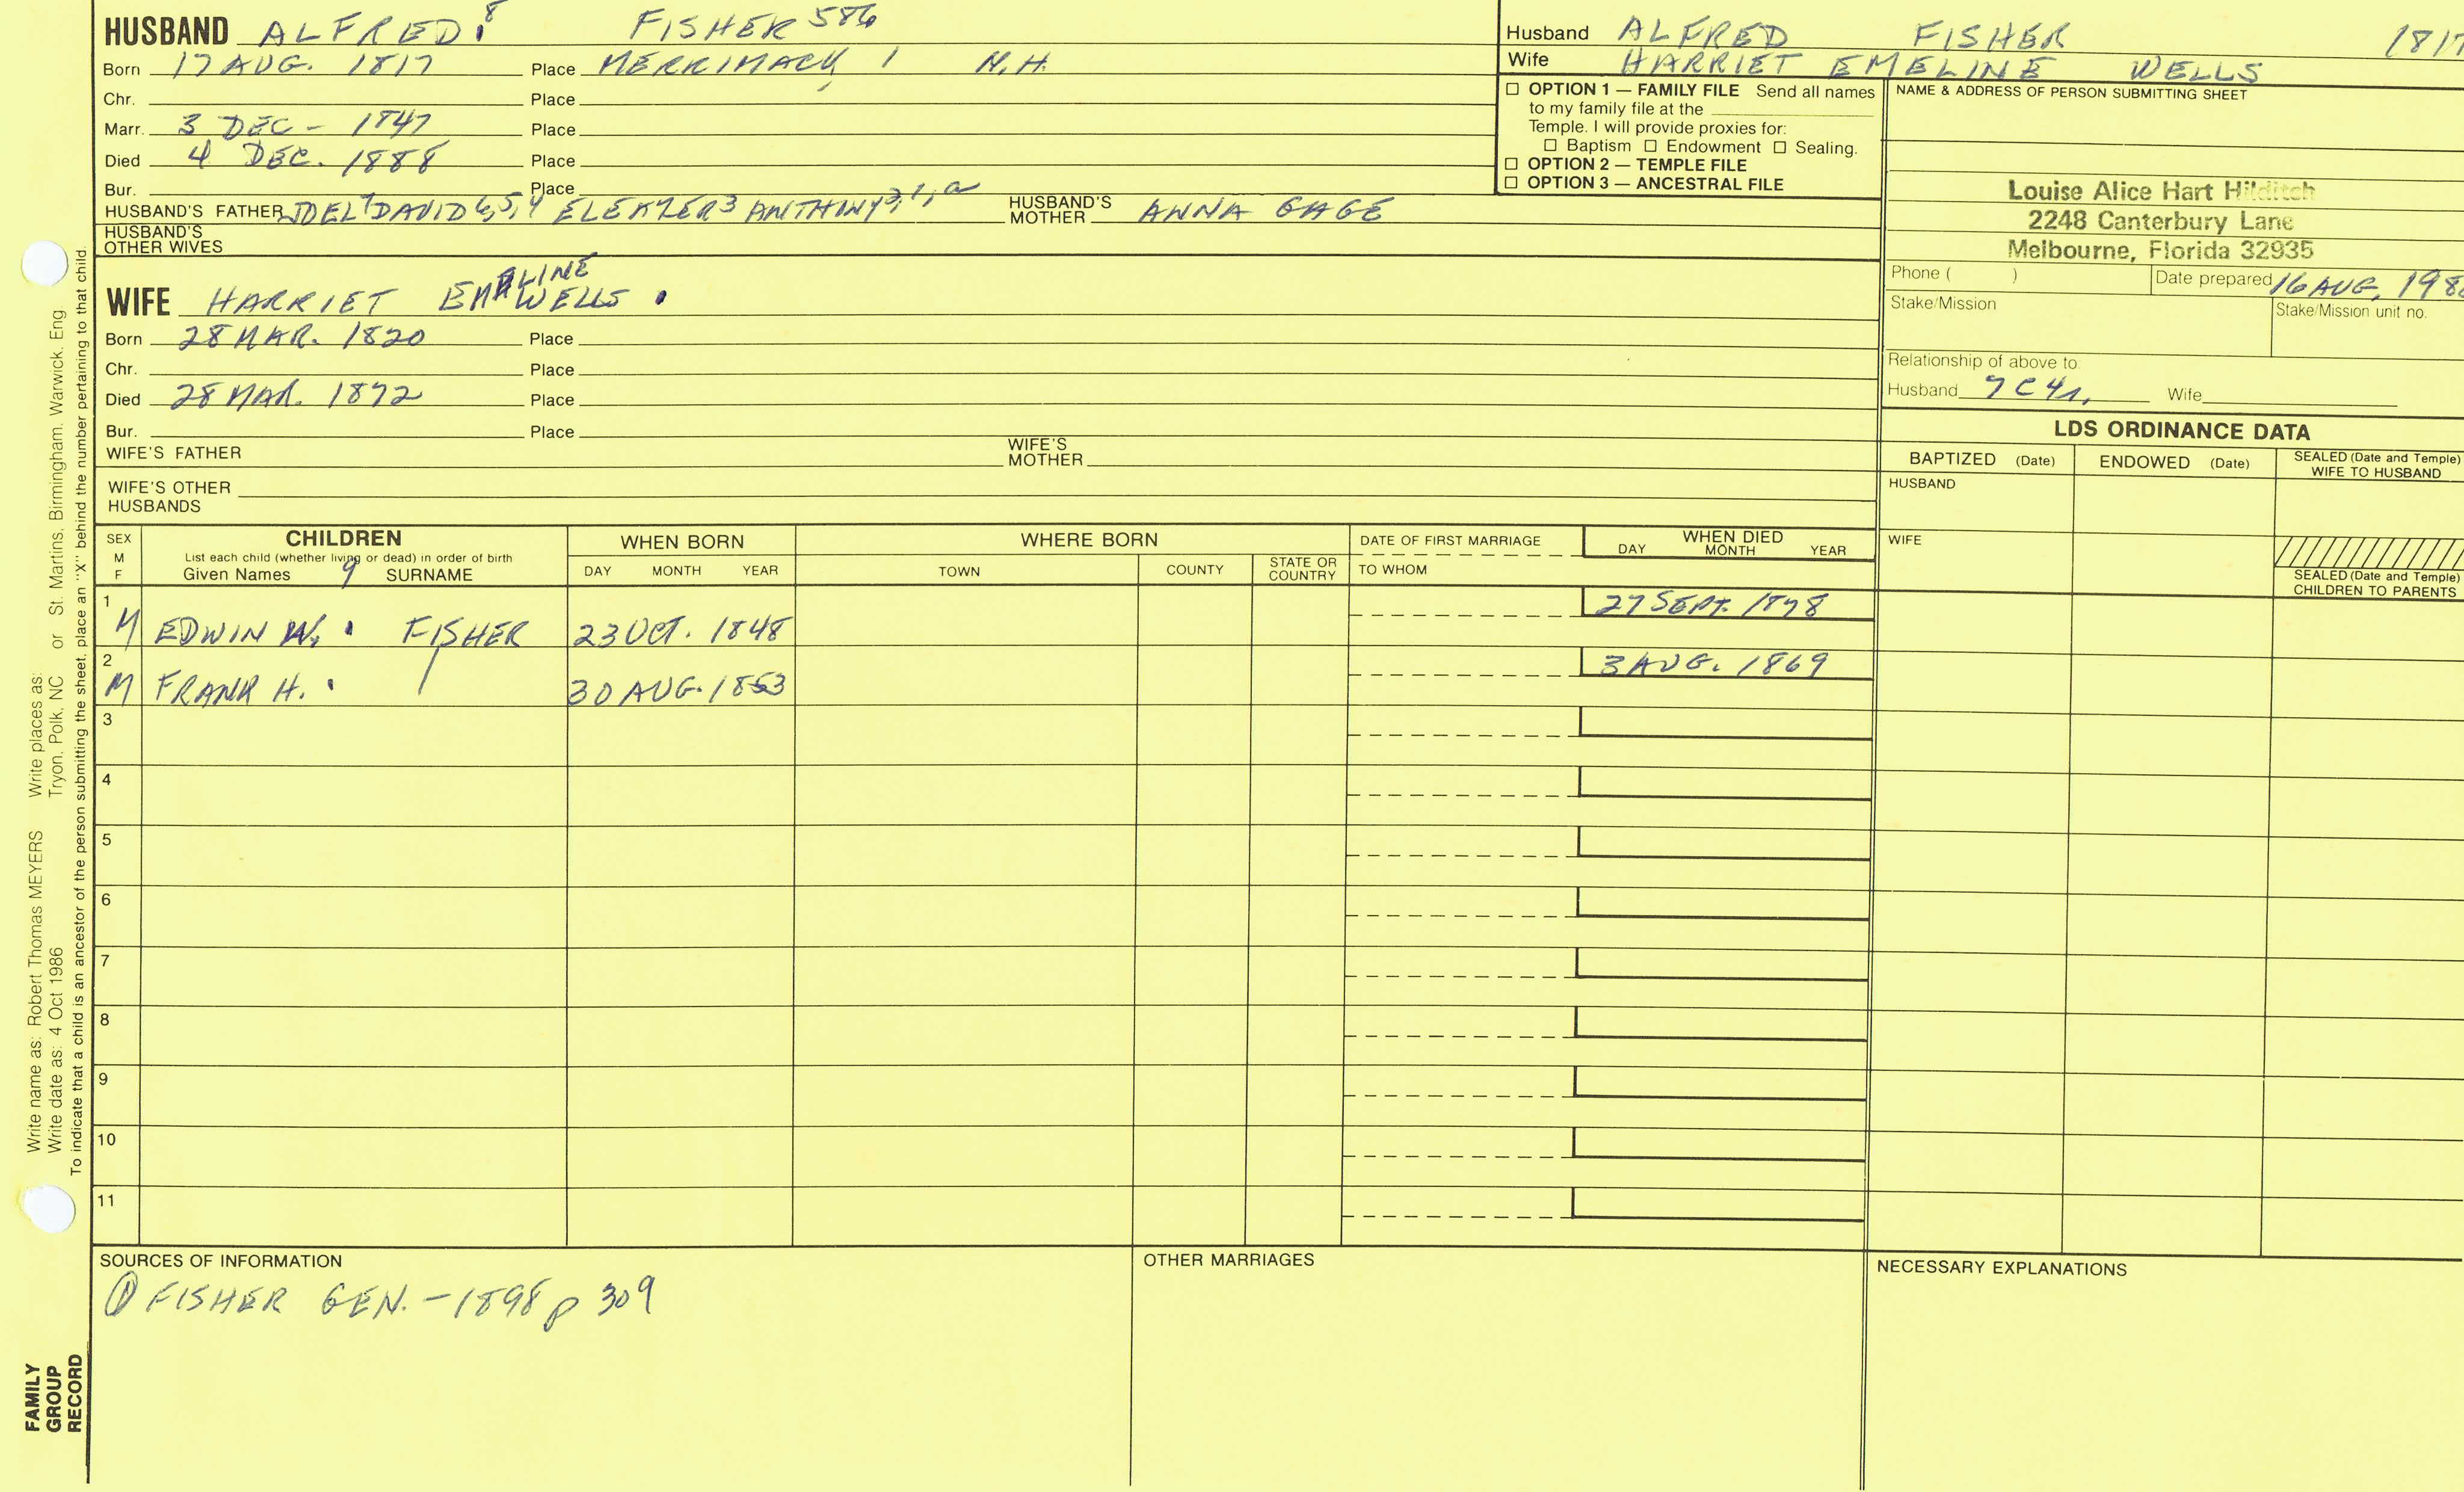 HUSBAND ALFRED 8 FISHER 586
Born 17 AUG. 1817 Place MERRIMACK, N.H.
Chr. Place
Marr. 3 DEC - 1847 Place
Died 4 DEC. 1888 Place
Bur. Place
HUSBAND'S FATHER JOEL 7 DAVID 6,5,4 ELEAZER 3 ANTHONY 2,1,a HUSBAND'S MOTHER ANNA GAGE
HUSBAND'S OTHER WIVES
WIFE HARRIET EMELINE WELLS
Born 28 MAR. 1820 Place
Chr. Place
Died 28 MAR. 1872 Place
Bur. Place
WIFE'S FATHER WIFE'S MOTHER
WIFE'S OTHER HUSBANDS
Husband ALFRED FISHER 1817
Wife HARRIET EMELINE WELLS
☐ OPTION 1 — FAMILY FILE Send all names
to my family file at the
Temple. I will provide proxies for:
☐ Baptism ☐ Endowment ☐ Sealing.
☐ OPTION 2 — TEMPLE FILE
☐ OPTION 3 — ANCESTRAL FILE
NAME & ADDRESS OF PERSON SUBMITTING SHEET
Louise Alice Hart Hilditch
2248 Canterbury Lane
Melbourne, Florida 32935
Phone ( ) Date prepared 16 AUG, 198
Stake/Mission Stake/Mission unit no.
Relationship of above to:
Husband 7C4r, Wife
LDS ORDINANCE DATA
BAPTIZED (Date) ENDOWED (Date) SEALED (Date and Temple) WIFE TO HUSBAND
HUSBAND
WIFE
SEALED (Date and Temple)
CHILDREN TO PARENTS
SEX M F CHILDREN WHEN BORN WHERE BORN DATE OF FIRST MARRIAGE WHEN DIED
List each child (whether living or dead) in order of birth
Given Names 9 SURNAME DAY MONTH YEAR TOWN COUNTY STATE OR COUNTRY TO WHOM DAY MONTH YEAR
1 M EDWIN W. FISHER 23 OCT. 1848 27 SEPT. 1878
2 M FRANK H. 30 AUG. 1853 3 AUG. 1869
3
4
5
6
7
8
9
10
11
SOURCES OF INFORMATION
① FISHER GEN. - 1898 p 309
OTHER MARRIAGES
NECESSARY EXPLANATIONS
Write name as: Robert Thomas MEYERS Write places as:
Write date as: 4 Oct 1986 Tryon, Polk, NC or St. Martins, Birmingham, Warwick, Eng.
To indicate that a child is an ancestor of the person submitting the sheet, place an "X" behind the number pertaining to that child.
FAMILY
GROUP
RECORD